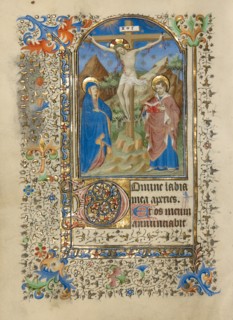 INRI
Domine labia
mea aperies.
Et os meum
annunciabit